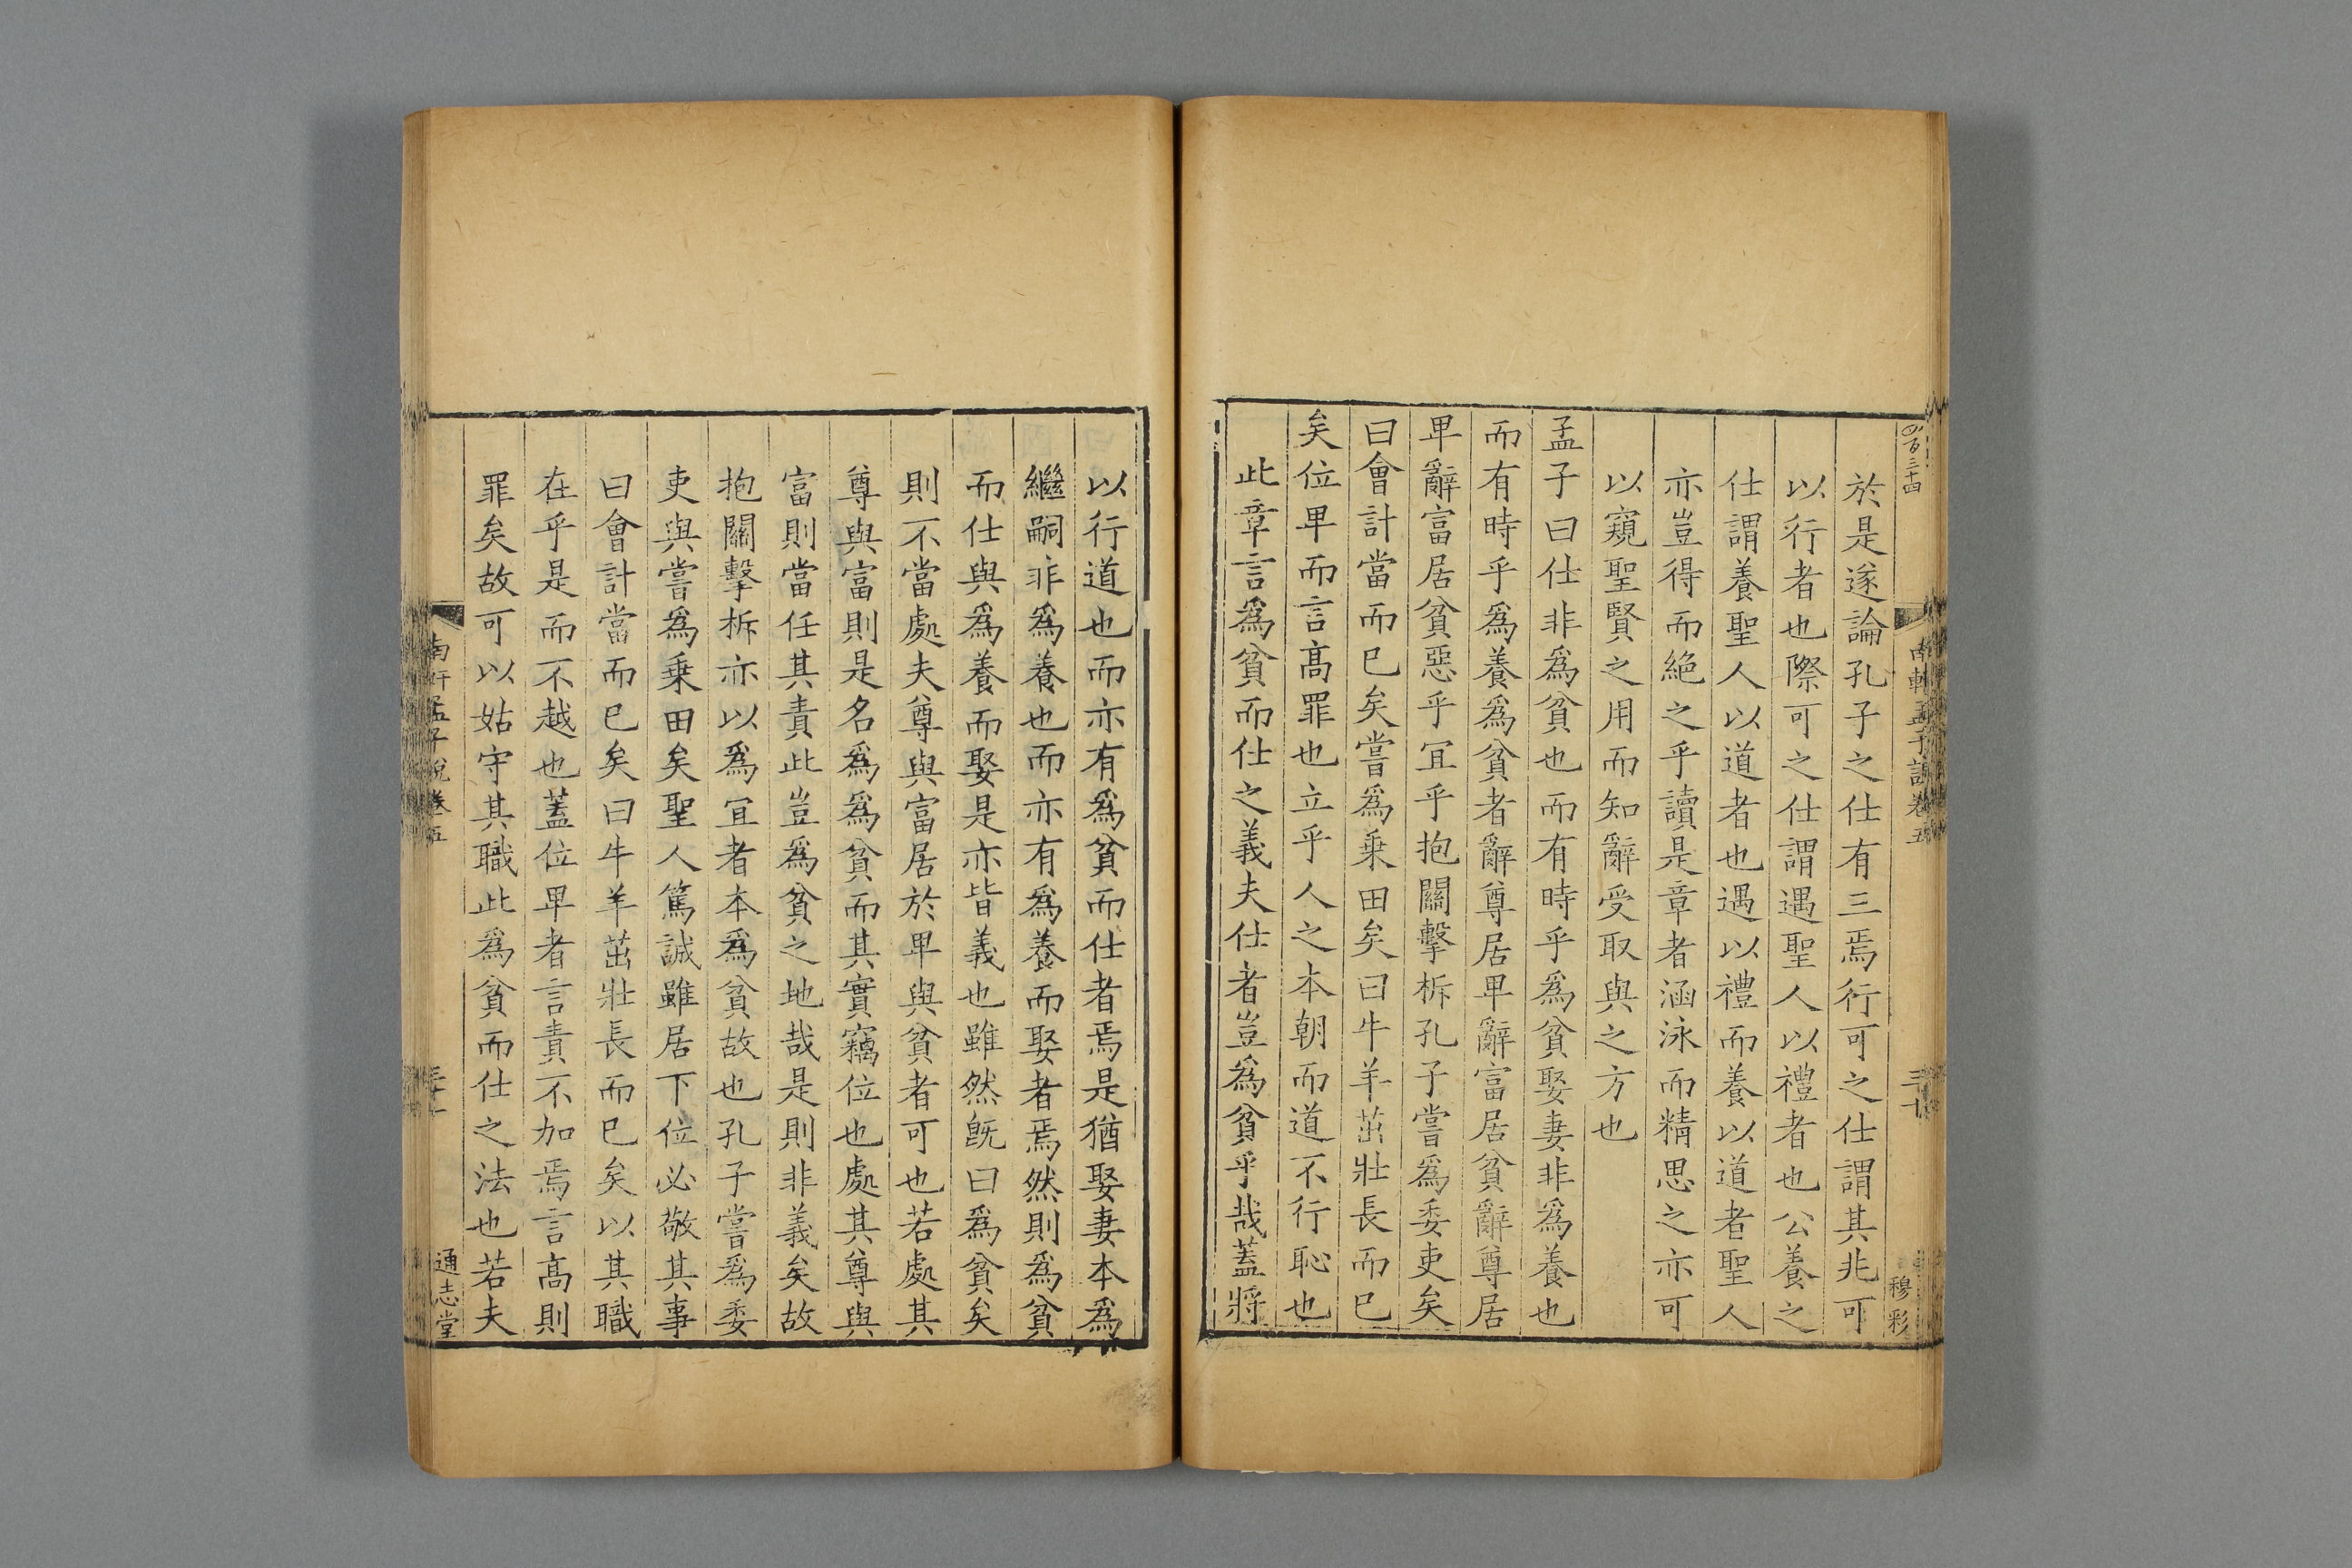 四百三十四
南軒孟子說卷五
三十
穆彩
於是遂論孔子之仕有三焉行可之仕謂其兆可
以行者也際可之仕謂遇聖人以禮者也公養之
仕謂養聖人以道者也遇以禮而養以道者聖人
亦豈得而絶之乎讀是章者涵泳而精思之亦可
以窺聖賢之用而知辭受取與之方也
孟子曰仕非爲貧也而有時乎爲貧娶妻非爲養也
而有時乎爲養爲貧者辭尊居卑辭富居貧辭尊居
卑辭富居貧惡乎宜乎抱關擊柝孔子嘗爲委吏矣
曰會計當而已矣嘗爲乗田矣曰牛羊茁壯長而已
矣位卑而言髙罪也立乎人之本朝而道不行恥也
此章言爲貧而仕之義夫仕者豈爲貧乎哉蓋將
以行道也而亦有爲貧而仕者焉是猶娶妻本爲
繼嗣非爲養也而亦有爲養而娶者焉然則爲貧
而仕與爲養而娶是亦皆義也雖然旣曰爲貧矣
則不當處夫尊與富居於卑與貧者可也若處其
尊與富則是名爲爲貧而其實竊位也處其尊與
富則當任其責此豈爲貧之地哉是則非義矣故
抱關擊柝亦以爲宜者本爲貧故也孔子嘗爲委
吏與嘗爲乗田矣聖人篤誠雖居下位必敬其事
曰會計當而已矣曰牛羊茁壯長而已矣以其職
在乎是而不越也蓋位卑者言責不加焉言髙則
罪矣故可以姑守其職此爲貧而仕之法也若夫
南軒孟子說卷五
通志堂